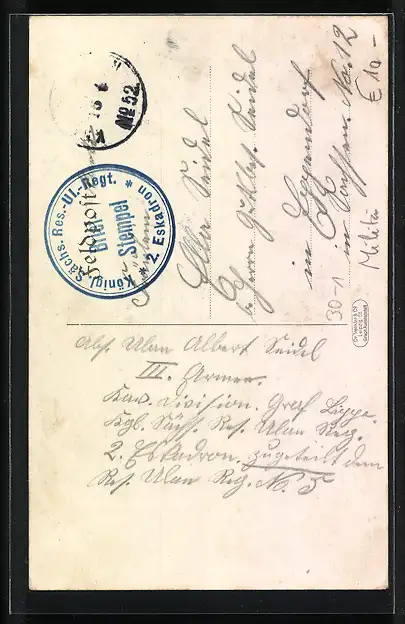 No 52
Feldpost
Königl. Sächs. Res.-Ul.-Regt.
* 2. Eskadron *
Brief
Stempel
Ella Seidel
b. Herrn Guthbes. Seidel
in
in Sachsen. No. 12
€ 10 –
Militär
30-1
Abs. Ulan Albert Seidel
III. Armee.
Kav. Division. Graf Lippe.
Kgl. Sächs. Res. Ulan Reg.
2. Eskadron. zugeteilt dem
Res. Ulan Reg. N. 5